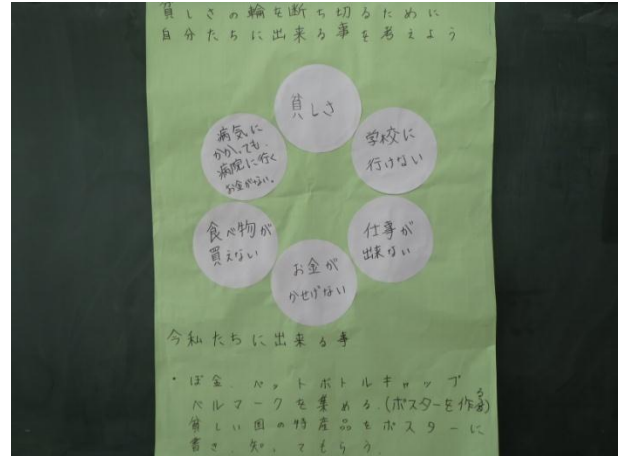 貧しさの輪を断ち切るために
自分たちに出来る事を考えよう
貧しさ
学校に
行けない
仕事が
出来ない
お金が
かせげない
食べ物が
買えない
病気に
かかっても、
病院に行く
お金がない。
今私たちに出来る事
・ぼ金、ペットボトルキャップ
ベルマークを集める。(ポスターを作る)
貧しい国の特産品をポスターに
書き、知ってもらう。